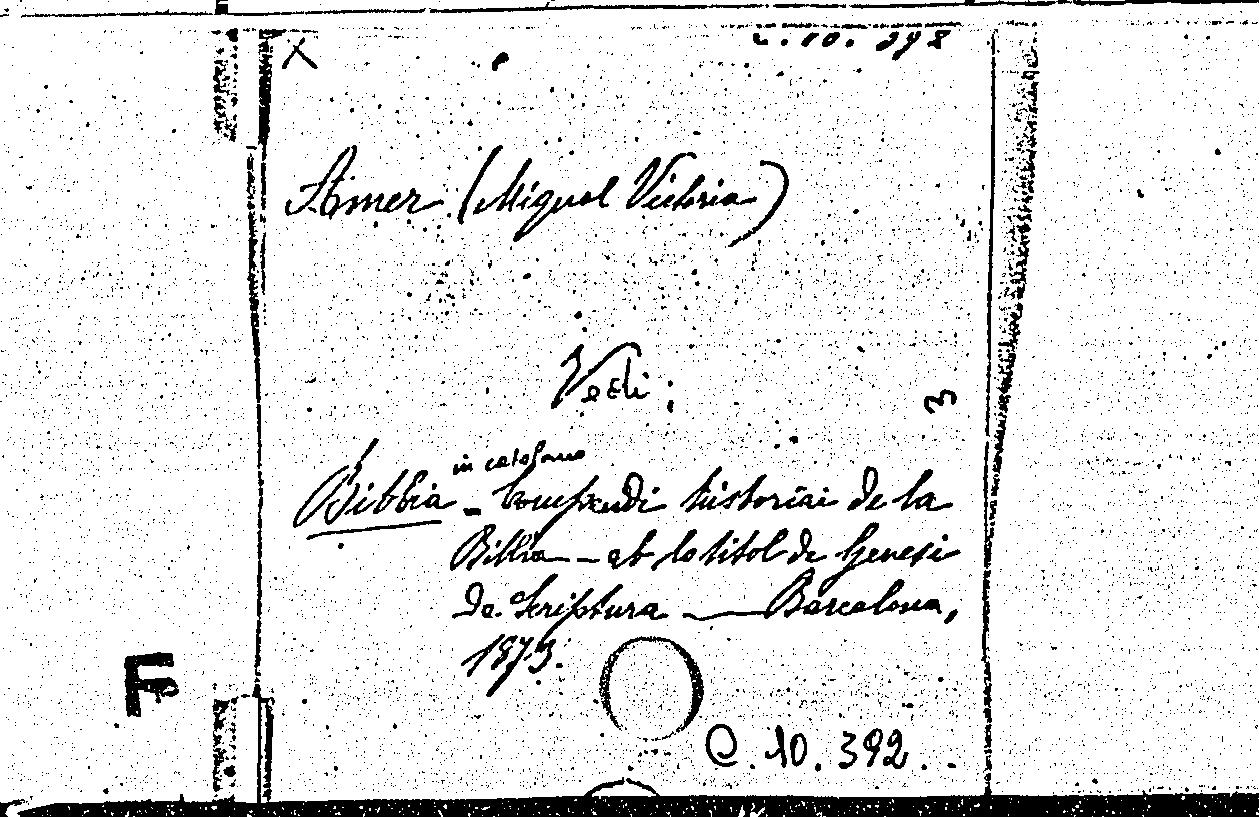 X
Amer (Miguel Victoria)
Vedi:
3
in catalano
Bibbia - Compendi historiai de la
Biblia - ab lo titol de Genesi
de Scriptura — Barcelona,
1873.
F
C. 10. 392..